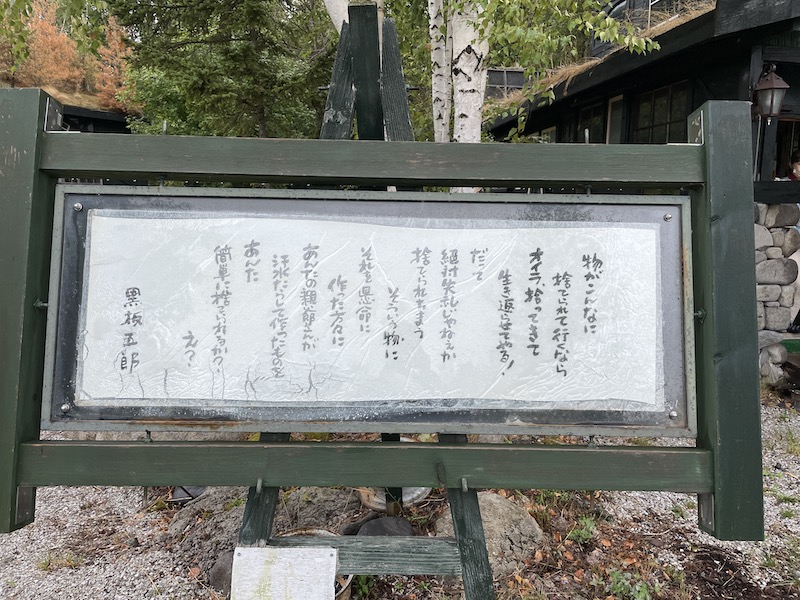 物がこんなに
捨てられて行くなら
オイラ、拾ってきて
生き返らせてやる!
だって
絶対失礼じゃねえか
捨てられちまう
そういう物に
それを懸命に
作った方々に
あんたの親爺さんが
汗水たらして作ったものを
あんた
簡単に捨てられるか?
え?
黒板五郎